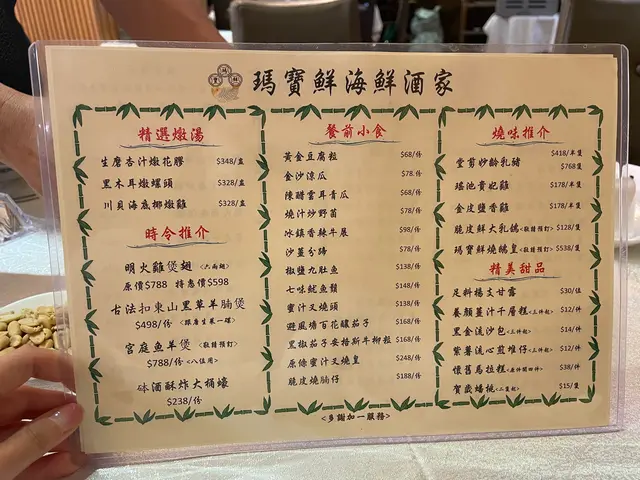 瑪寶鮮海鮮酒家
精選燉湯
生磨杏汁燉花膠 $348/盅
黑木耳燉螺頭 $328/盅
川貝海底椰燉雞 $328/盅
時令推介
明火雞煲翅 <六両翅>
原價$788 特惠價$598
古法扣東山黑草羊腩煲
$498/份 <跟唐生菜一碟>
宮庭魚羊煲 <敬請預訂>
$788/份 <八位用>
砵酒酥炸大桶蠔
$238/份
餐前小食
黃金豆腐粒 $68/份
金沙涼瓜 $78/份
陳醋雲耳青瓜 $68/份
燒汁炒野菌 $78/份
冰鎮香辣牛𦟌 $98/份
沙薑分蹄 $78/份
椒鹽九肚魚 $138/份
七味魷魚鬚 $148/份
蜜汁叉燒頭 $138/份
避風塘百花釀茄子 $168/份
黑椒茄子安格斯牛柳粒 $168/份
原條蜜汁叉燒皇 $248/份
脆皮燒腩仔 $188/份
燒味推介
堂剪妙齡乳豬 $418/半隻
$768隻
瑤池貴妃雞 $178/半隻
金皮鹽香雞 $178/半隻
脆皮鮮大乳鴿 <敬請預訂> $128/隻
瑪寶鮮燒鵝皇 <敬請預訂> $538/隻
精美甜品
足料楊支甘露 $30/位
養顏薑汁千層糕 <三件起> $12/件
黑金流沙包 <三件起> $14/件
紫薯流心煎堆仔 <三件起> $12/件
懷舊馬拉糕 <壹件開四件> $38/件
賀歲蟠桃 <二隻起> $15/隻
<多謝加一服務>